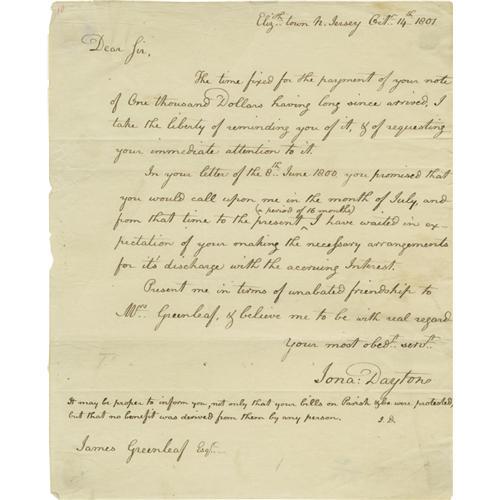 Eliz:th town N. Jersey Oct:r 14th 1801
Dear Sir,
The time fixed for the payment of your note
of One thousand Dollars having long since arrived, I
take the liberty of reminding you of it, & of requesting
your immediate attention to it.
In your letter of the 8th June 1800 you promised that
you would call upon me in the month of July, and
(a period of 16 months)
from that time to the present ^ I have waited in ex-
pectation of your making the necessary arrangements
for it's discharge with the accruing Interest.
Present me in terms of unabated friendship to
Mrs. Greenleaf, & believe me to be with real regard
Your most obedt. servt.
Jona: Dayton
It may be proper to inform you, not only that your bills on Parish &Co were protested,
but that no benefit was derived from them by any person. J.D.
James Greenleaf Esqr.